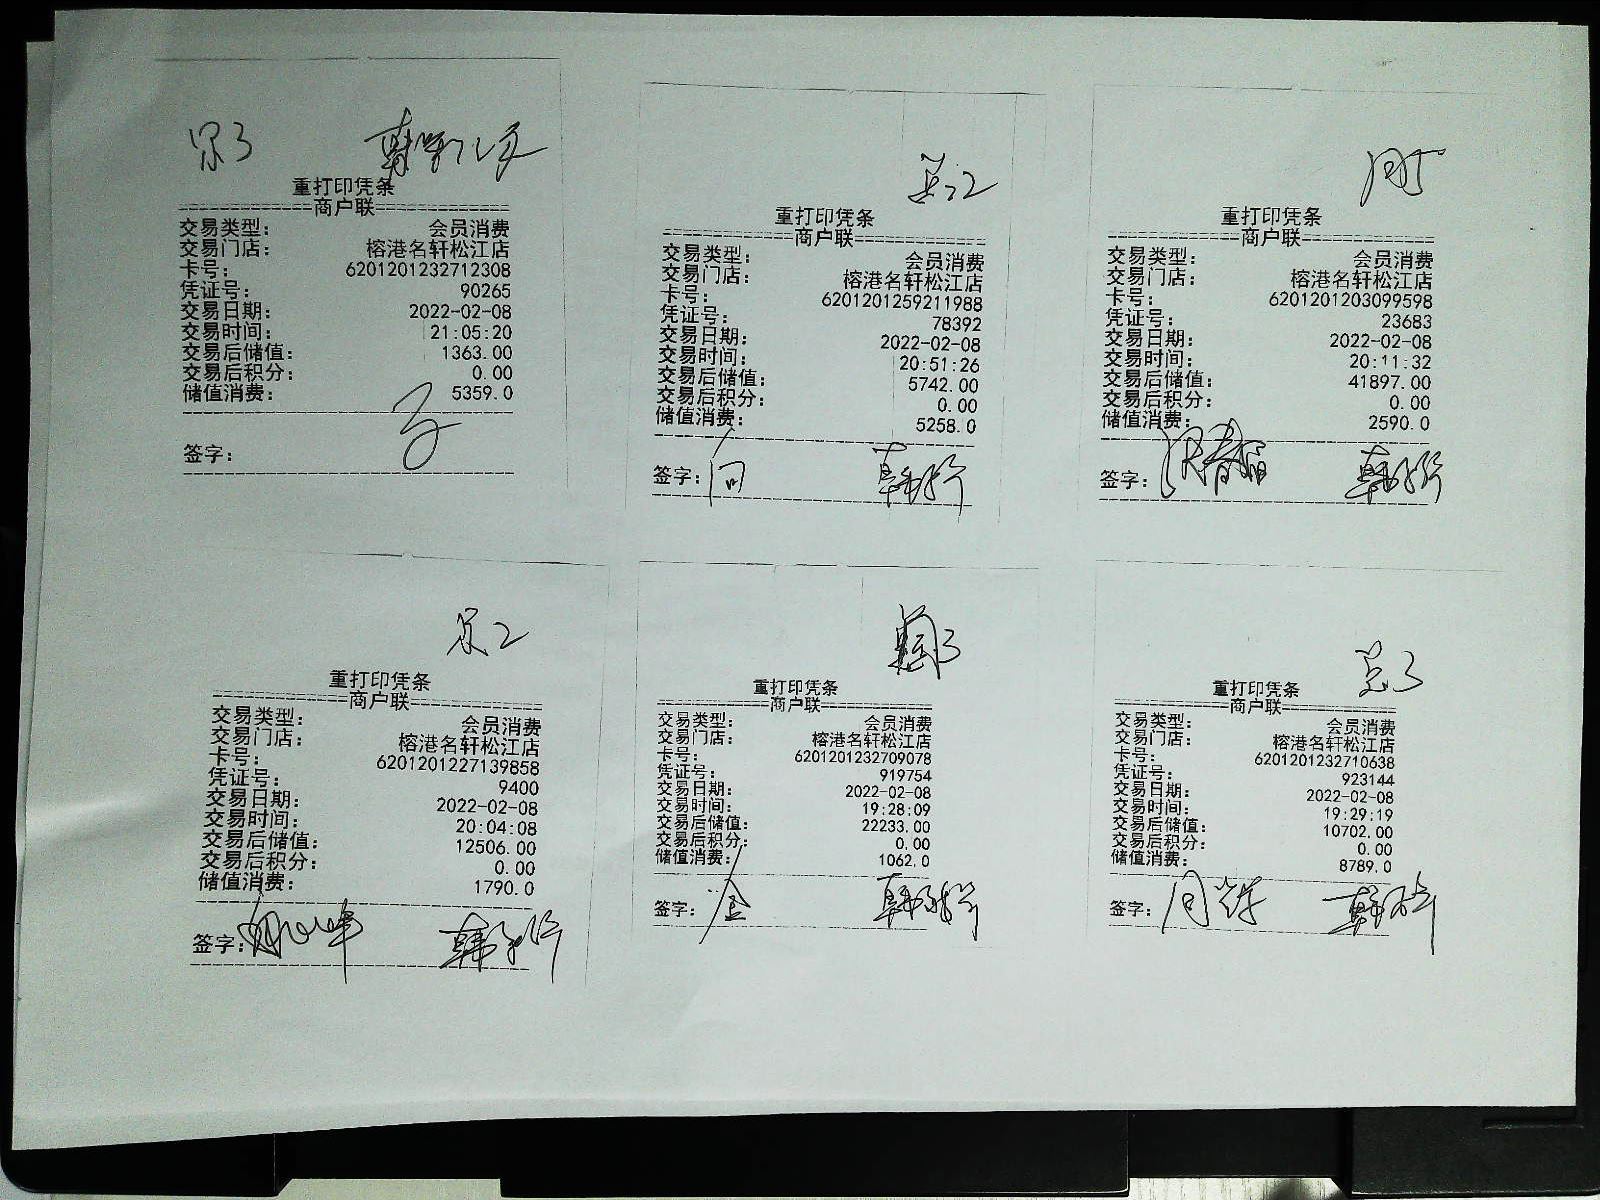 重打印凭条
============商户联============
交易类型: 会员消费
交易门店: 榕港名轩松江店
卡号: 6201201232712308
凭证号: 90265
交易日期: 2022-02-08
交易时间: 21:05:20
交易后储值: 1363.00
交易后积分: 0.00
储值消费: 5359.0
签字:
重打印凭条
============商户联============
交易类型: 会员消费
交易门店: 榕港名轩松江店
卡号: 6201201259211988
凭证号: 78392
交易日期: 2022-02-08
交易时间: 20:51:26
交易后储值: 5742.00
交易后积分: 0.00
储值消费: 5258.0
签字:
重打印凭条
============商户联============
交易类型: 会员消费
交易门店: 榕港名轩松江店
卡号: 6201201203099598
凭证号: 23683
交易日期: 2022-02-08
交易时间: 20:11:32
交易后储值: 41897.00
交易后积分: 0.00
储值消费: 2590.0
签字:
重打印凭条
============商户联============
交易类型: 会员消费
交易门店: 榕港名轩松江店
卡号: 6201201227139858
凭证号: 9400
交易日期: 2022-02-08
交易时间: 20:04:08
交易后储值: 12506.00
交易后积分: 0.00
储值消费: 1790.0
签字:
重打印凭条
============商户联============
交易类型: 会员消费
交易门店: 榕港名轩松江店
卡号: 6201201232709078
凭证号: 919754
交易日期: 2022-02-08
交易时间: 19:28:09
交易后储值: 22233.00
交易后积分: 0.00
储值消费: 1062.0
签字:
重打印凭条
============商户联============
交易类型: 会员消费
交易门店: 榕港名轩松江店
卡号: 6201201232710638
凭证号: 923144
交易日期: 2022-02-08
交易时间: 19:29:19
交易后储值: 10702.00
交易后积分: 0.00
储值消费: 8789.0
签字: